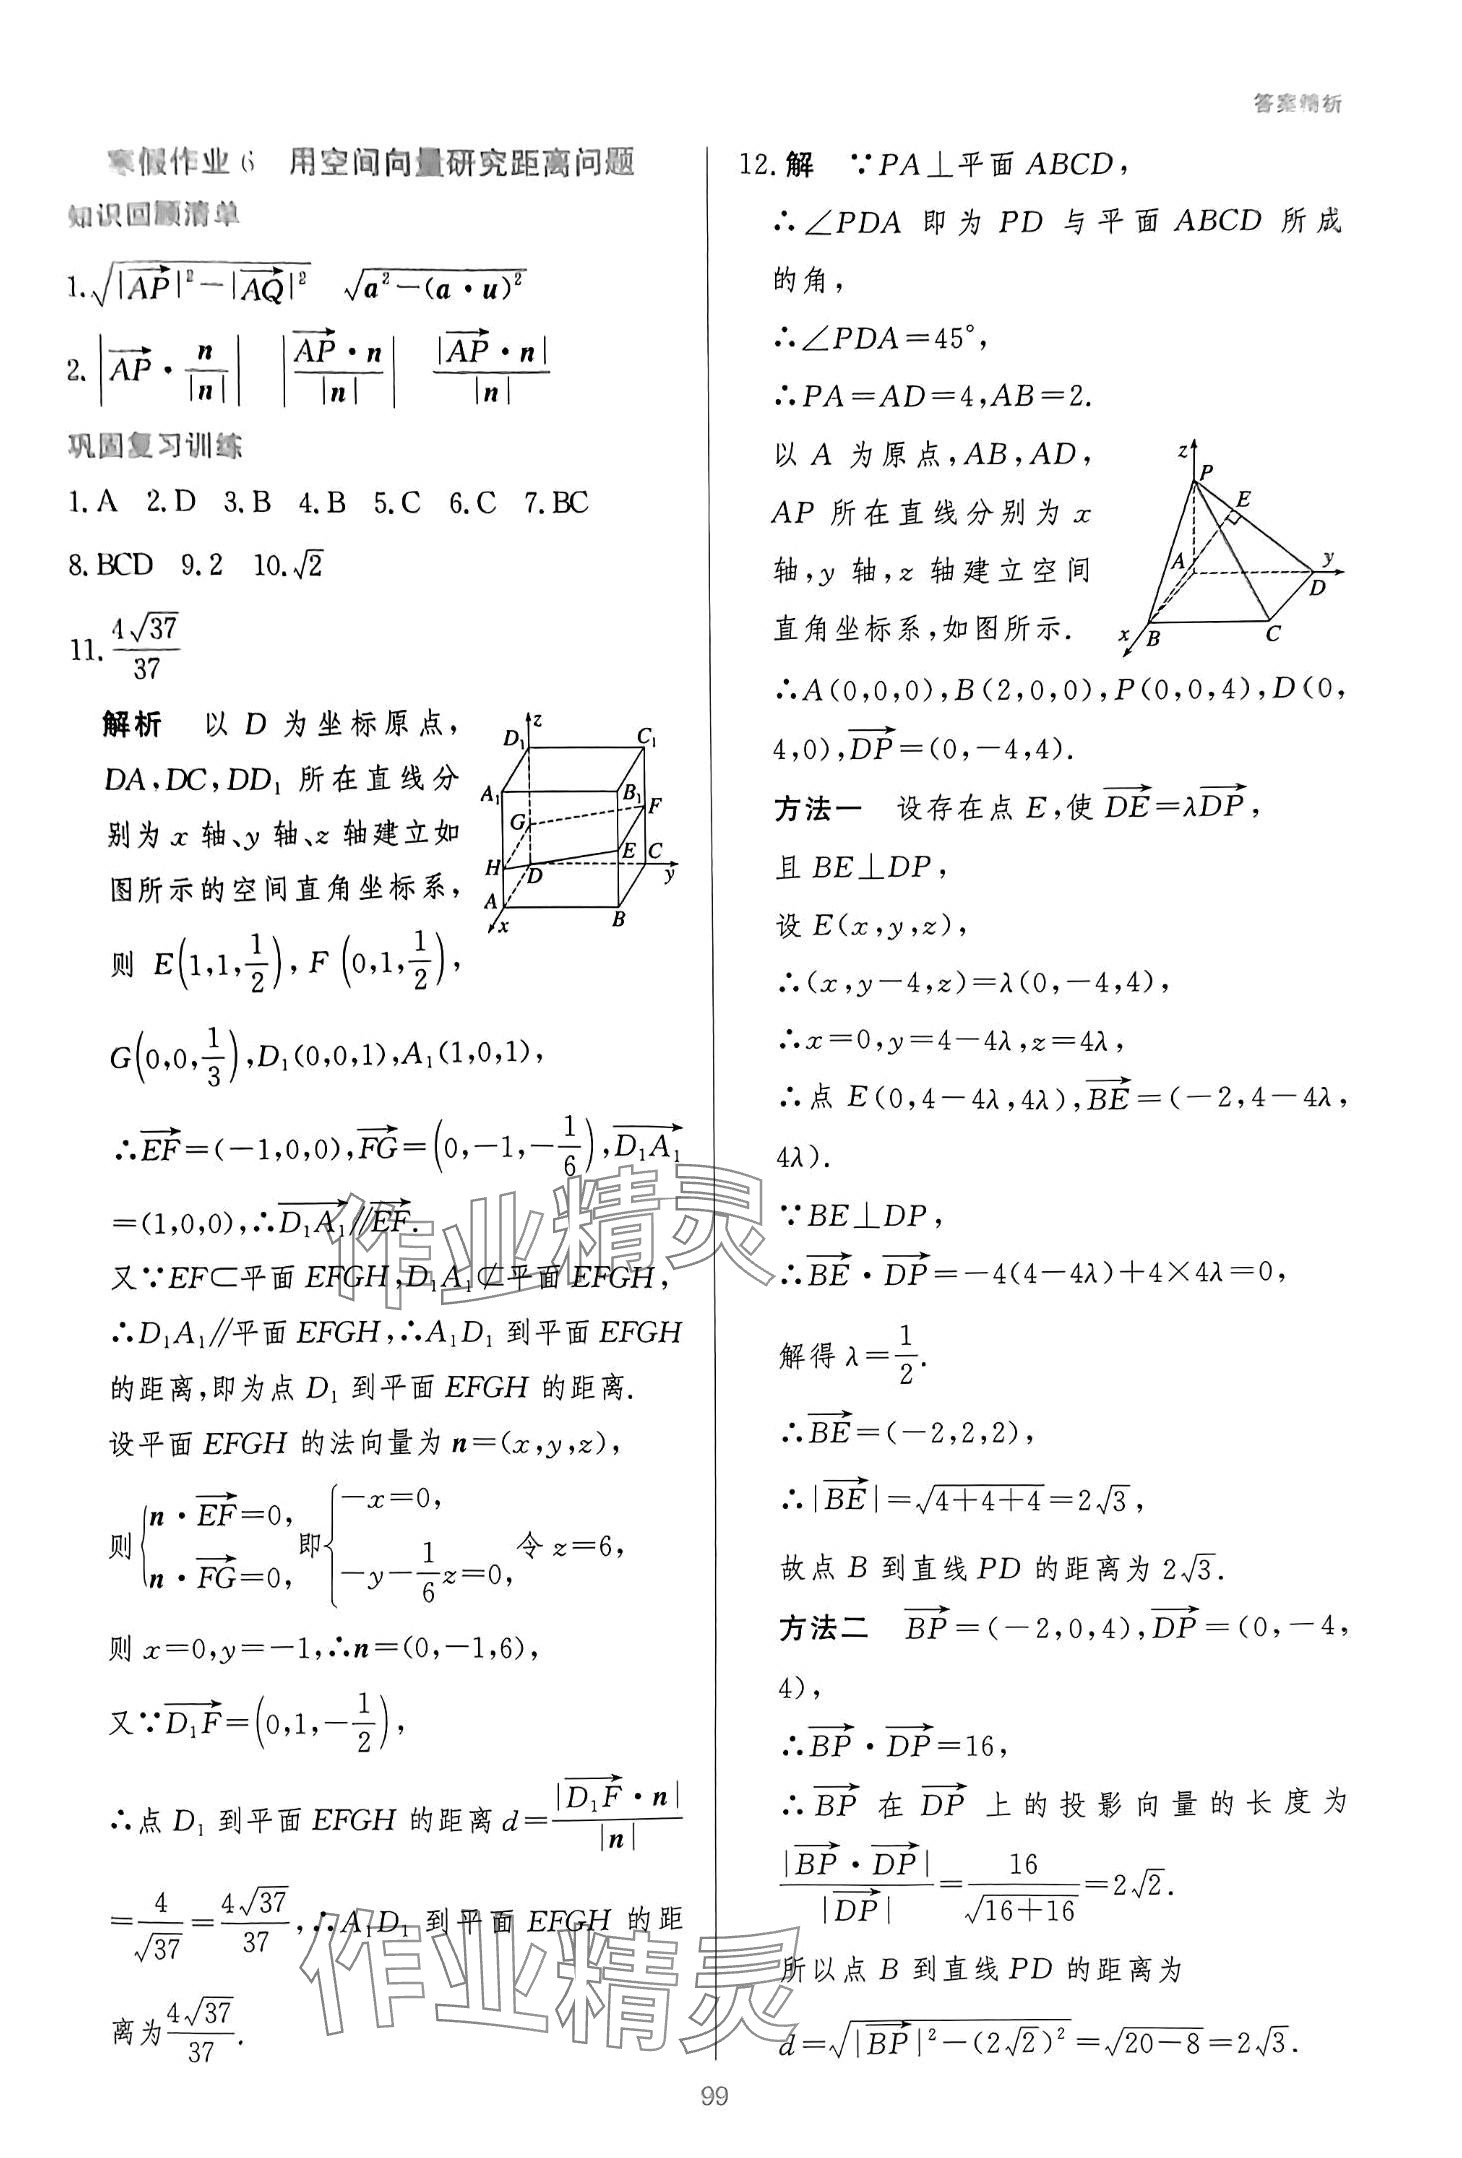 答案精析
寒假作业6 用空间向量研究距离问题
知识回顾清单
1.√(|AP→|²−|AQ→|²) √(a²−(a·u)²)
2.|AP→·n/|n|| |AP→·n/|n|| |AP→·n|/|n|
巩固复习训练
1.A 2.D 3.B 4.B 5.C 6.C 7.BC
8.BCD 9.2 10.√2
11.4√37/37
解析 以 D 为坐标原点,
DA,DC,DD₁ 所在直线分
别为 x 轴、y 轴、z 轴建立如
图所示的空间直角坐标系,
则 E(1,1,1/2),F(0,1,1/2),
G(0,0,1/3),D₁(0,0,1),A₁(1,0,1),
∴EF→=(−1,0,0),FG→=(0,−1,−1/6),D₁A₁→
=(1,0,0),∴D₁A₁→∥EF→.
又∵EF⊂平面 EFGH,D₁A₁⊄平面 EFGH,
∴D₁A₁∥平面 EFGH,∴A₁D₁ 到平面 EFGH
的距离,即为点 D₁ 到平面 EFGH 的距离.
设平面 EFGH 的法向量为 n=(x,y,z),
则{n·EF→=0, n·FG→=0, 即{−x=0, −y−1/6z=0, 令 z=6,
则 x=0,y=−1,∴n=(0,−1,6),
又∵D₁F→=(0,1,−1/2),
∴点 D₁ 到平面 EFGH 的距离 d=|D₁F→·n|/|n|
=4/√37=4√37/37,∴A₁D₁ 到平面 EFGH 的距
离为4√37/37.
D₁ z C₁
A₁ B₁ F
G
H D E C y
A x B
12.解 ∵PA⊥平面 ABCD,
∴∠PDA 即为 PD 与平面 ABCD 所成
的角,
∴∠PDA=45°,
∴PA=AD=4,AB=2.
以 A 为原点,AB,AD,
AP 所在直线分别为 x
轴,y 轴,z 轴建立空间
直角坐标系,如图所示.
z P E
A y D
x B C
∴A(0,0,0),B(2,0,0),P(0,0,4),D(0,
4,0),DP→=(0,−4,4).
方法一 设存在点 E,使 DE→=λDP→,
且 BE⊥DP,
设 E(x,y,z),
∴(x,y−4,z)=λ(0,−4,4),
∴x=0,y=4−4λ,z=4λ,
∴点 E(0,4−4λ,4λ),BE→=(−2,4−4λ,
4λ).
∵BE⊥DP,
∴BE→·DP→=−4(4−4λ)+4×4λ=0,
解得 λ=1/2.
∴BE→=(−2,2,2),
∴|BE→|=√(4+4+4)=2√3,
故点 B 到直线 PD 的距离为 2√3.
方法二 BP→=(−2,0,4),DP→=(0,−4,
4),
∴BP→·DP→=16,
∴BP→ 在 DP→ 上的投影向量的长度为
|BP→·DP→|/|DP→|=16/√(16+16)=2√2.
所以点 B 到直线 PD 的距离为
d=√(|BP→|²−(2√2)²)=√(20−8)=2√3.
99
作业精灵
作业精灵